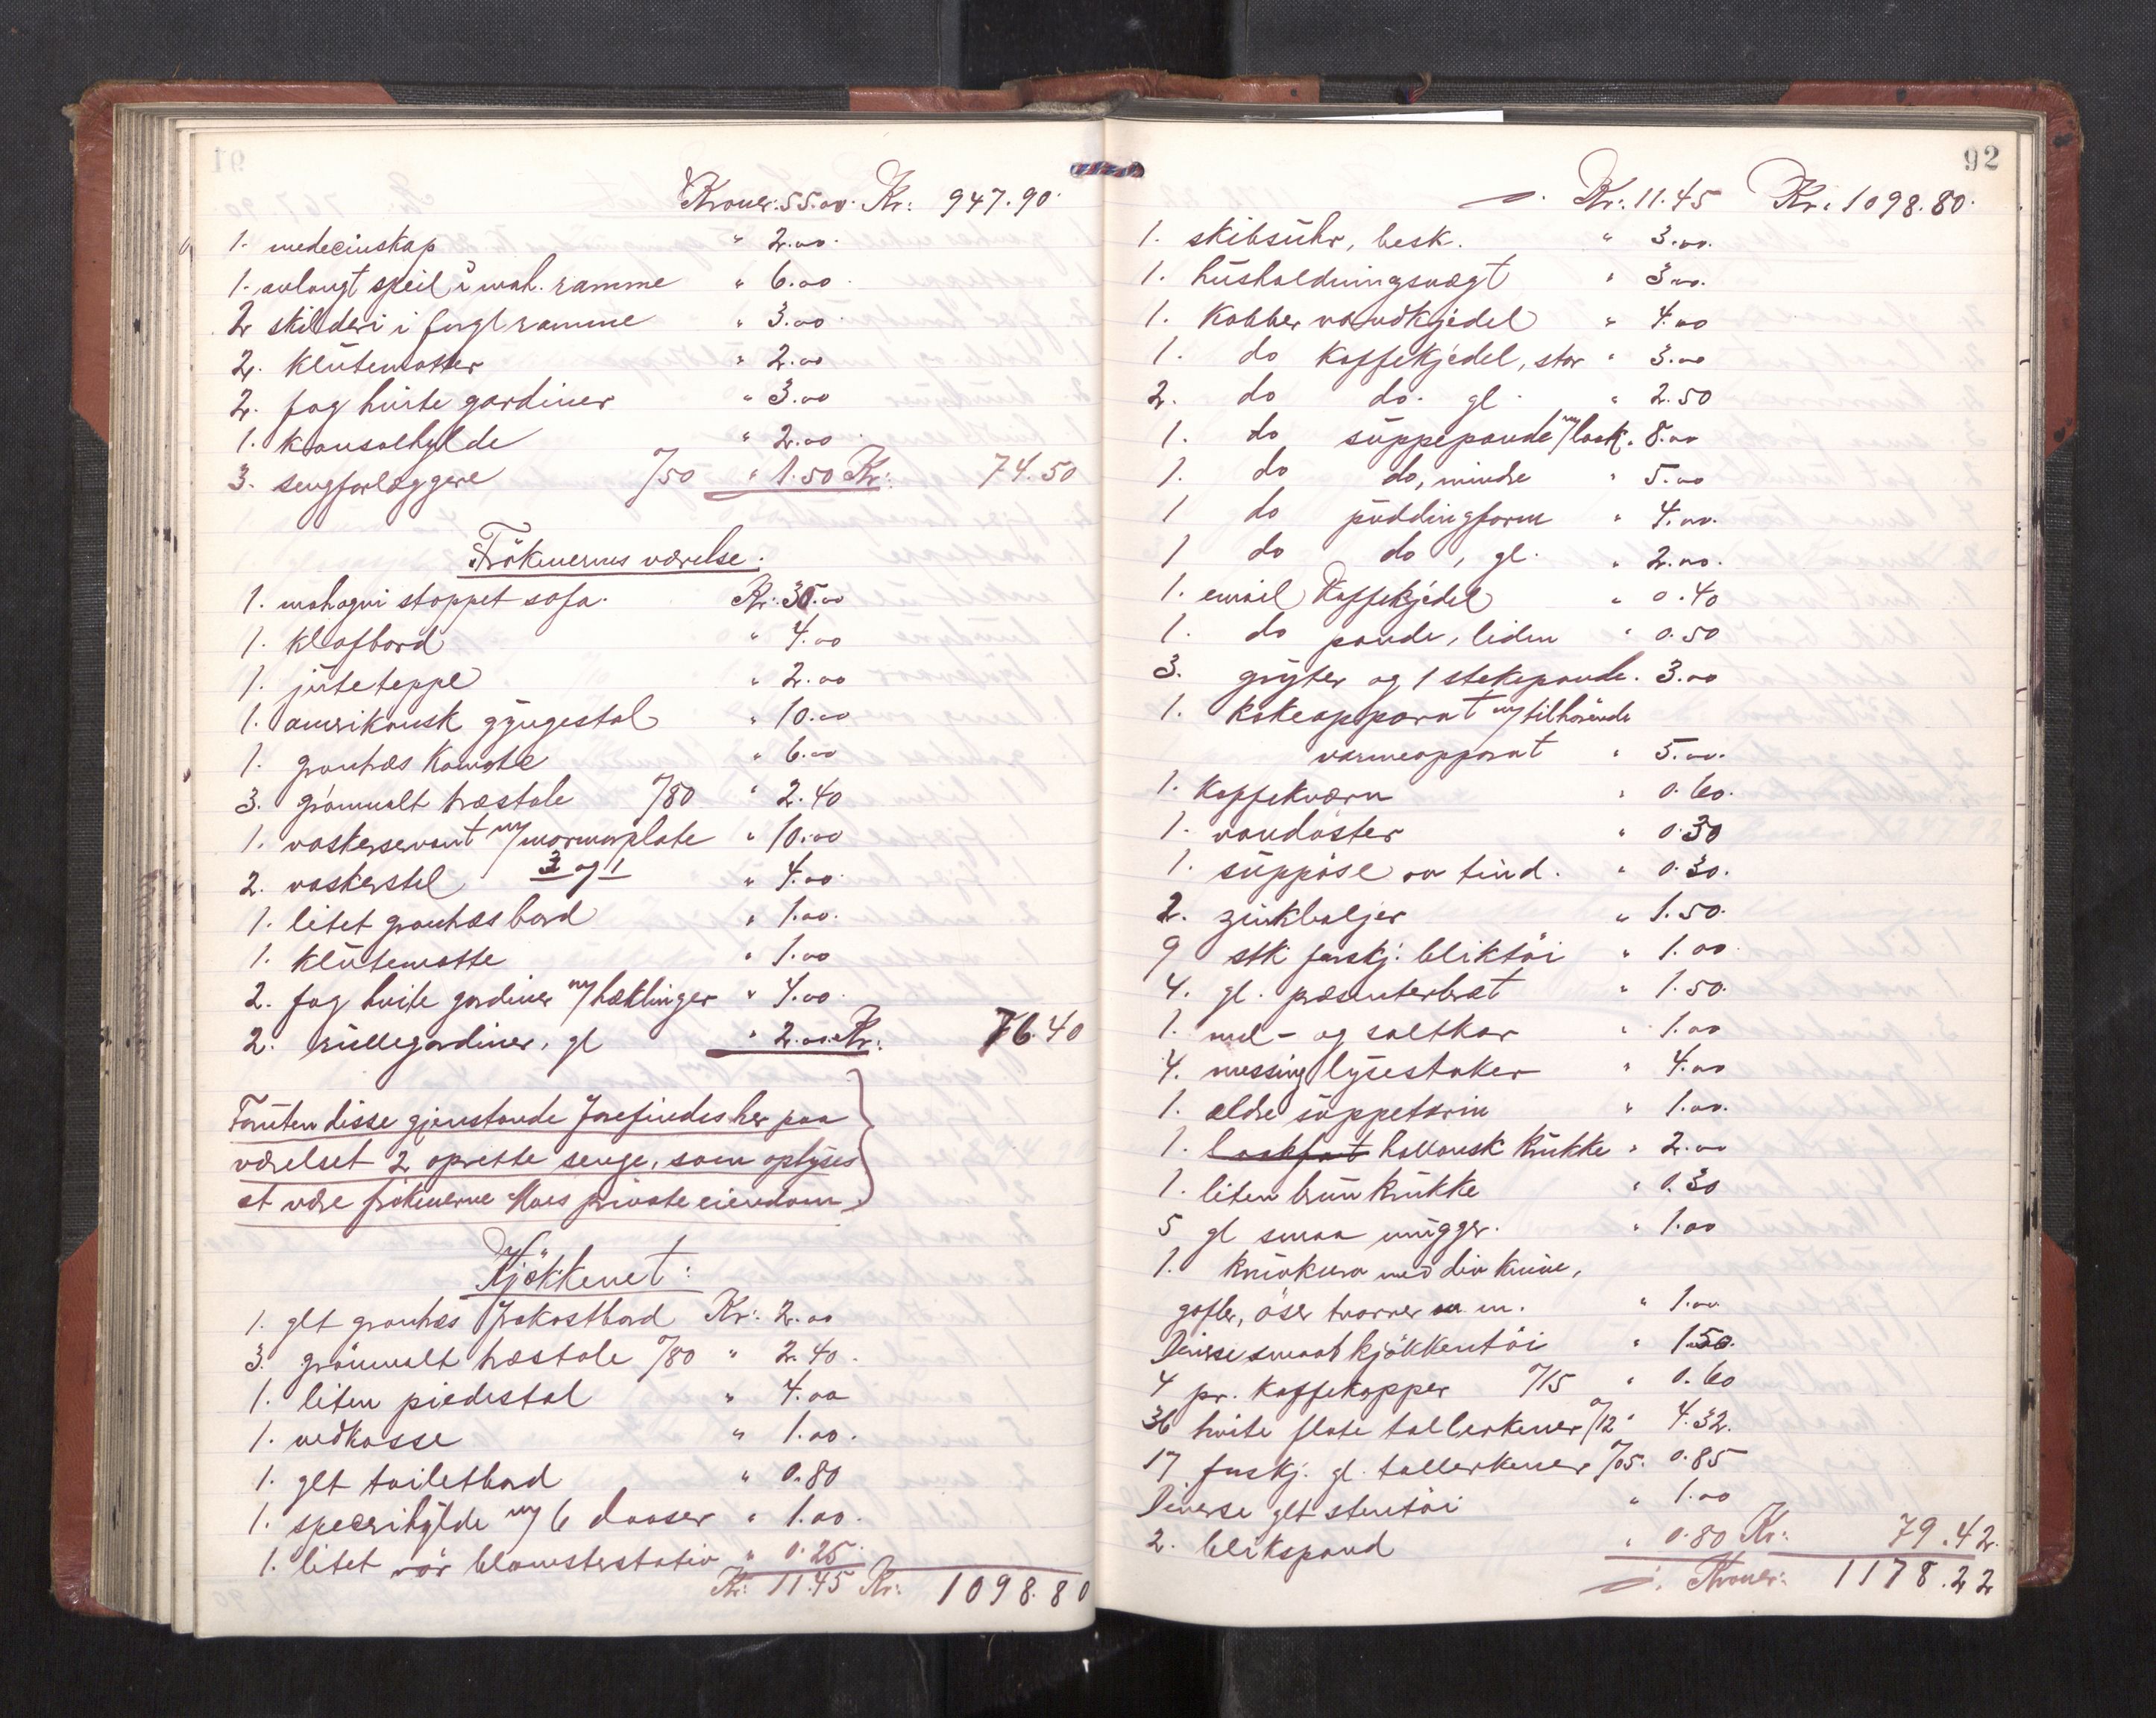 Kroner: 55.00. Kr: 947.90.
1. medecinskap " 2.00.
1. avlangt speil i mah. ramme " 6.00.
2 skilderi i forgt ramme " 3.00.
2. klütematter " 2.00
2. fag hvite gardiner " 3.00
1. konsolhylde " 2.00.
3. sengforlæggere a/50 " 1.50 Kr: 74.50
Fröknernes værelse.
1. mahogni stoppet sofa. Kr: 35.00
1. klafbord " 4.00
1. jüteteppe " 2.00
1. amrikansk gyngestol " 10.00
1. grantræs komode " 6.00
3. grönmalt træstole a/80 " 2.40
1. vaskeservant m/ marmorplate " 10.00
2. vaskestel 3 og 1 " 4.00.
1. litet grantræs bord " 1.00.
1. klütematte " 1.00
2. fag hvite gardiner m/ hæklinger " 4.00.
2. rüllegardiner, gl " 2.00. Kr: 76.40
Foruten disse gjenstande forefindes her paa
værelset 2 oprette senge, som oplyses
at være frökenerne Moes private eiendom
Kjökkenet:
1. glt grantræs frokostbord Kr: 2.00
3. grönmalt træstole a/80 " 2.40.
1. liten piedestal " 4.00
1. vedkasse " 1.00.
1. glt toiletbord " 0.80
1. specerihylde m/ 6 daaser " 1.00.
1. litet rör blomsterstativ " 0.25.
Kr: 11.45 Kr: 1098.80
92
Kr: 11.45 Kr. 1098.80.
1. skibsühr, besk. " 3.00.
1. hüsholdningsvægt " 3.00.
1. kobber vandkjedel " 4.00
1. do kaffekjedel, stor " 3.00
2. do do. gl. " 2.50
1. do süppepande m/ laak. 8.00
1. do do, mindre " 5.00
1 do püddingform " 4.00.
1 do do, gl. " 2.00.
1. email kaffekjedel " 0.40
1. do pande, liden " 0.50
3. gryter og 1 stekepande. 3.00
1. kokeapparat m/ tilhörende
varmeapparat " 5.00.
1. kaffekværn " 0.60.
1. vandöster " 0.30
1. süppöse av tind. " 0.30.
2. zinkbaljer " 1.50.
9 stk forskj. bliktöi " 1.00.
4. gl. præsenterbræt " 1.50.
1. mel- og saltkar " 1.00
4. messing lysestaker " 4.00
1. ældre süppeterin " 1.00.
1. hollansk krükke " 2.00
1. liten brün krükke " 0.30
5 gl smaa mügger. " 1.00
1. knivkürv med div knive,
gafler, öser tvarrer m. m. " 1.00
Diverse smaat kjökkentöi " 1.50.
4 pr. kaffekopper a/15 " 0.60
36 hvite flate tallerkener a/12 " 4.32.
17 forskj. gl. tallerkener a/05. 0.85
Diverse glt stentöi " 1.00
2. blikspand " 0.80 Kr: 79.42.
Kroner: 1178.22